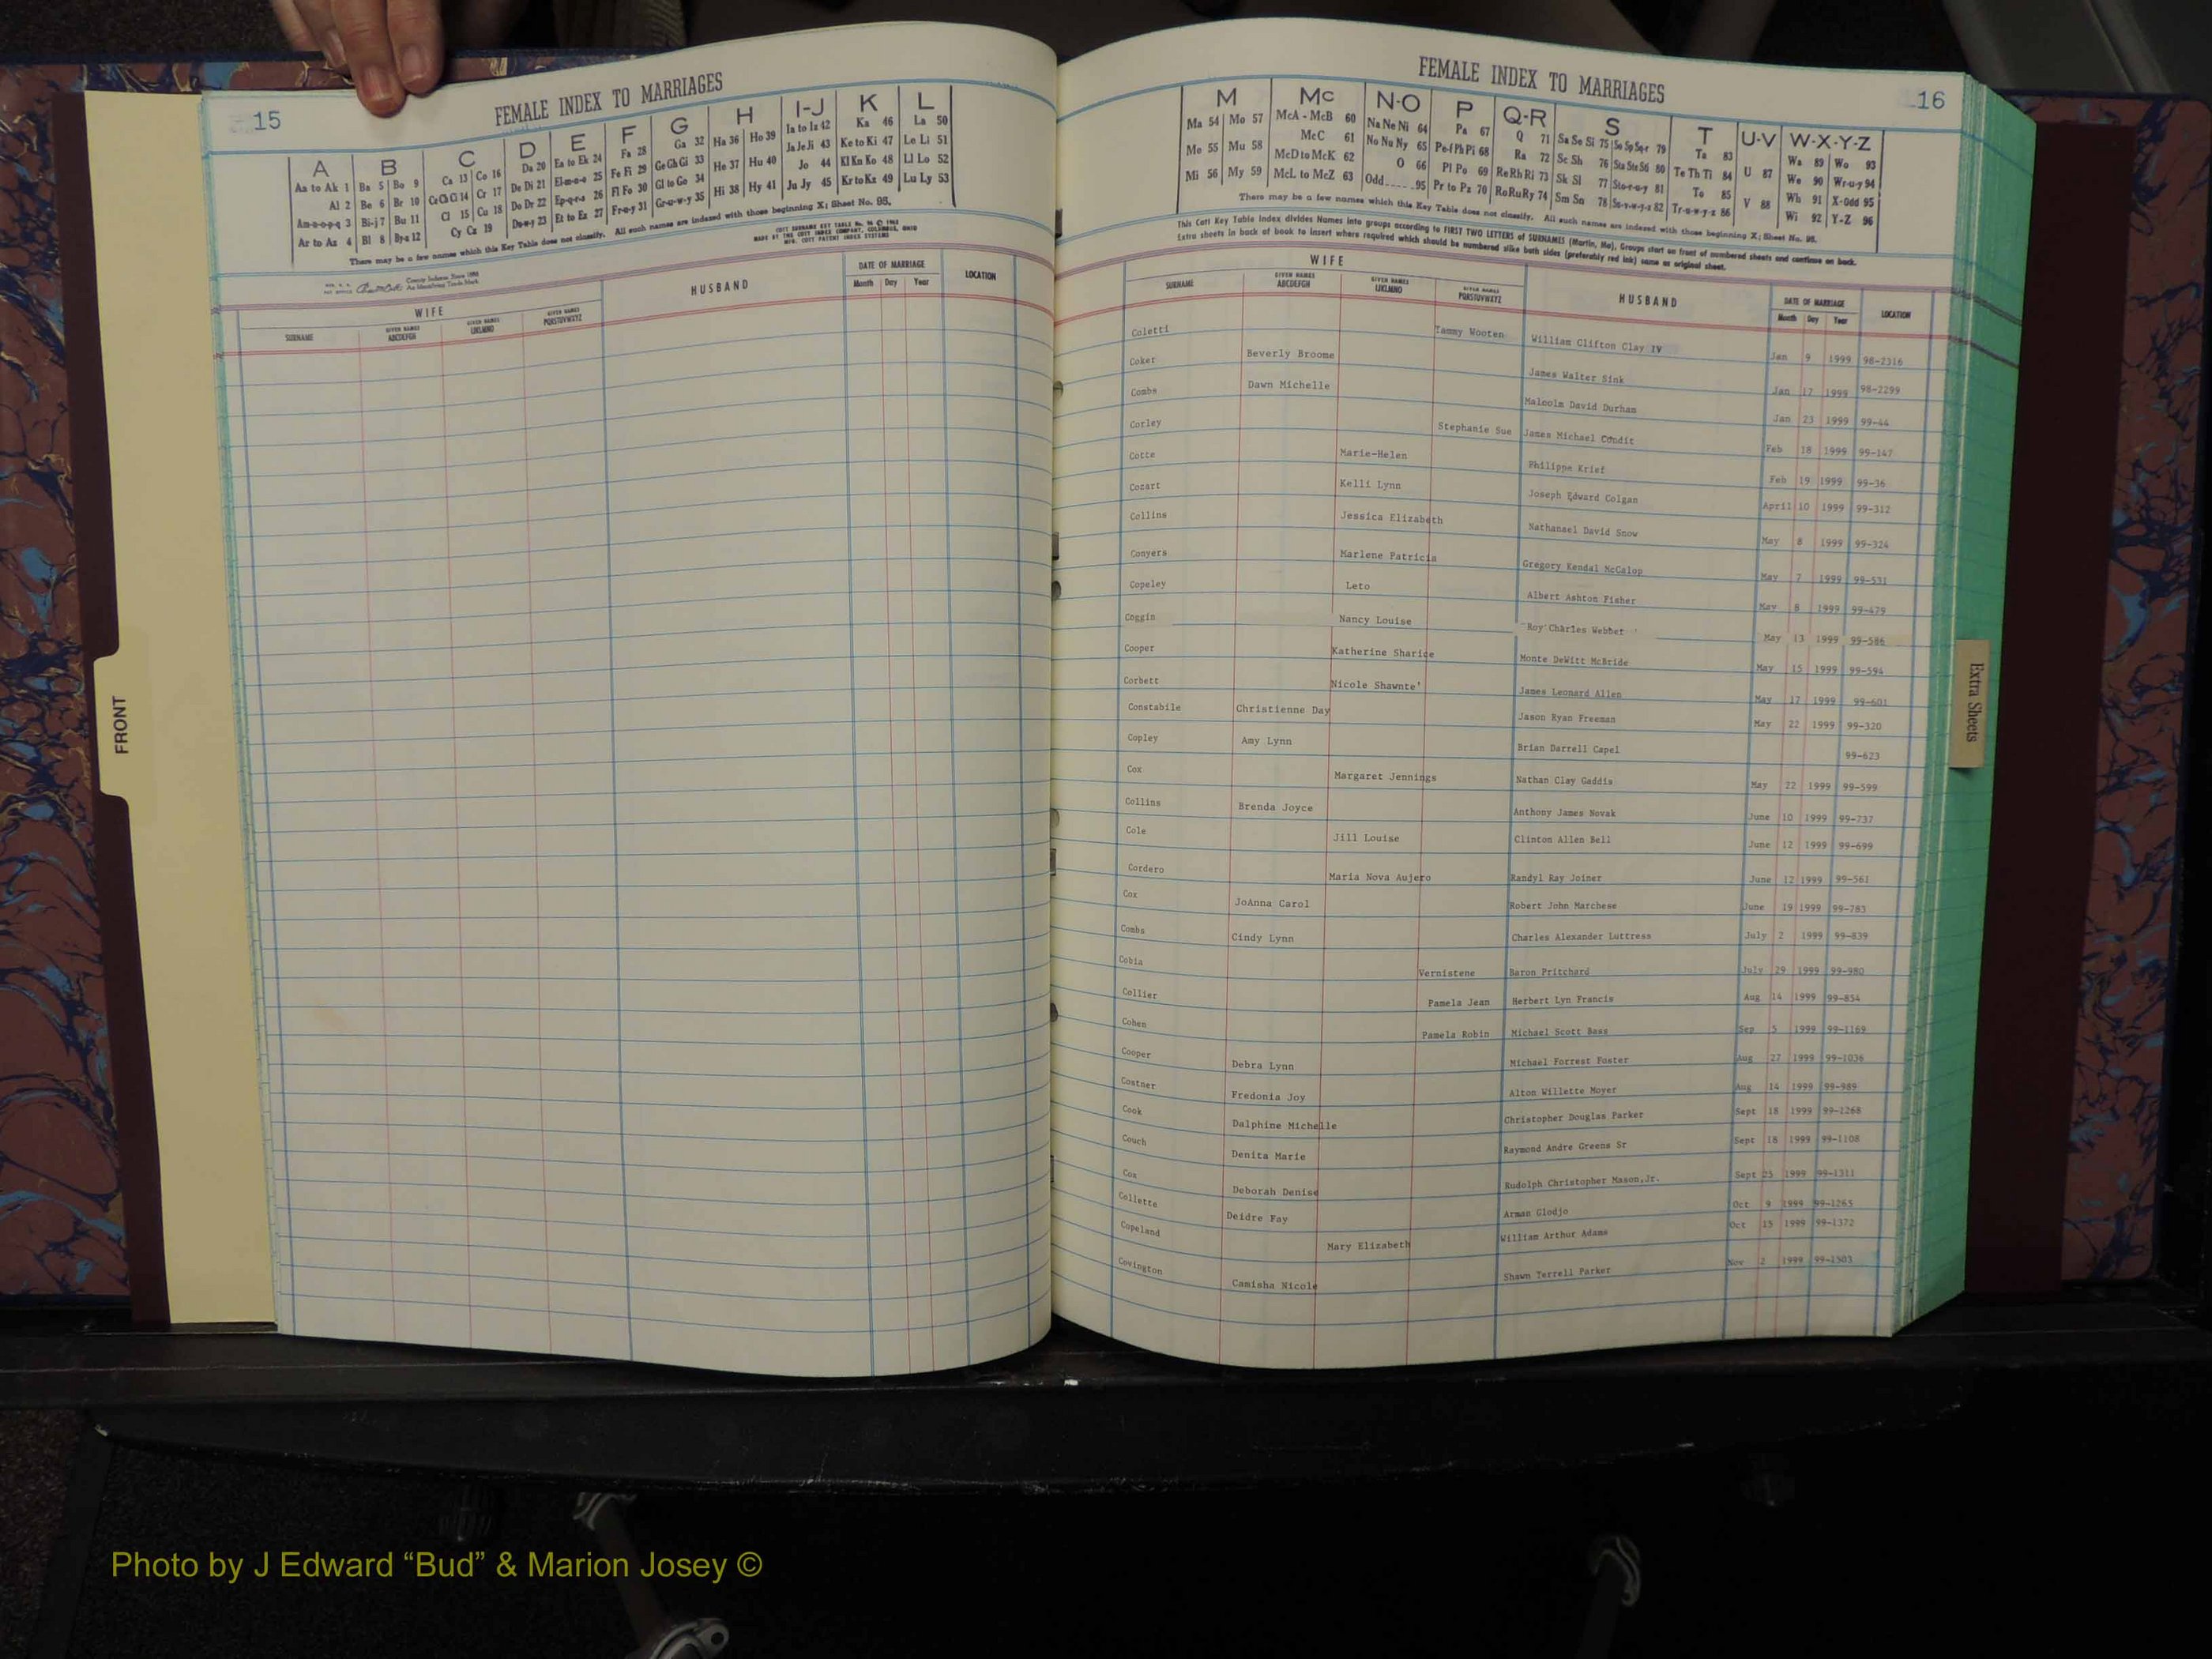 15
FEMALE INDEX TO MARRIAGES
A B C D E F G H I-J K L
Aa to Ak 1 Ba 5 Bo 9 Ca 13 Co 16 Da 20 Ea to Ek 24 Fa 28 Ga 32 Ha 36 Ho 39 Ia to Iz 42 Ka 46 La 50
Al 2 Be 6 Br 10 Ce Ch Ci 14 Cr 17 De Di 21 El-m-n-o 25 Fe Fi 29 Ge Gh Gi 33 He 37 Hu 40 Ja Je Ji 43 Ke to Ki 47 Le Li 51
Am-n-o-p-q 3 Bi-j 7 Bu 11 Cl 15 Cu 18 Do Dr 22 Ep-q-r-s 26 Fl Fo 30 Gl to Go 34 Hi 38 Hy 41 Jo 44 Kl Kn Ko 48 Ll Lo 52
Ar to Az 4 Bl 8 By-z 12 Cy Cz 19 Du-w-y 23 Et to Ez 27 Fr-u-y 31 Gr-u-w-y 35 Ju Jy 45 Kr to Kz 49 Lu Ly 53
There may be a few names which this Key Table does not classify. All such names are indexed with those beginning X; Sheet No. 95.
WIFE HUSBAND DATE OF MARRIAGE LOCATION
SURNAME GIVEN NAMES ABCDEFGH GIVEN NAMES IJKLMNO GIVEN NAMES PQRSTUVWXYZ Month Day Year
FRONT
FEMALE INDEX TO MARRIAGES
16
M Mc N-O P Q-R S T U-V W-X-Y-Z
Ma 54 Mo 57 McA - McB 60 Na Ne Ni 64 Pa 67 Q 71 Sa Se Si 75 So Sp Sq-r 79 Ta 83 U 87 Wa 89 Wo 93
Me 55 Mu 58 McC 61 No Nu Ny 65 Pe-f Ph Pi 68 Ra 72 Sc Sh 76 Sta Ste Sti 80 Te Th Ti 84 V 88 We 90 Wr-u-y 94
Mi 56 My 59 McD to McK 62 O 66 Pl Po 69 Re Rh Ri 73 Sk Sl 77 Sto-r-u-y 81 To 85 Wh 91 X-Odd 95
McL to McZ 63 Odd 95 Pr to Pz 70 Ro Ru Ry 74 Sm Sn 78 Su-v-w-y-z 82 Tr-u-w-y-z 86 Wi 92 Y-Z 96
There may be a few names which this Key Table does not classify. All such names are indexed with those beginning X; Sheet No. 95.
This Cott Key Table Index divides Names into groups according to FIRST TWO LETTERS of SURNAMES (Martin, Ma). Groups start on front of numbered sheets and continue on back.
Extra sheets in back of book to insert where required which should be numbered alike both sides (preferably red ink) same as original sheet.
WIFE HUSBAND DATE OF MARRIAGE LOCATION
SURNAME GIVEN NAMES ABCDEFGH GIVEN NAMES IJKLMNO GIVEN NAMES PQRSTUVWXYZ Month Day Year
Coletti Tammy Wooten William Clifton Clay IV Jan 9 1999 98-2316
Coker Beverly Broome James Walter Sink Jan 17 1999 98-2299
Combs Dawn Michelle Malcolm David Durham Jan 23 1999 99-44
Corley Stephanie Sue James Michael Condit Feb 18 1999 99-147
Cotte Marie-Helen Philippe Krief Feb 19 1999 99-36
Cozart Kelli Lynn Joseph Edward Colgan April 10 1999 99-312
Collins Jessica Elizabeth Nathanael David Snow May 8 1999 99-324
Conyers Marlene Patricia Gregory Kendal McCalop May 7 1999 99-531
Copeley Leto Albert Ashton Fisher May 8 1999 99-479
Coggin Nancy Louise Roy Charles Webbet May 13 1999 99-586
Cooper Katherine Sharice Monte DeWitt McBride May 15 1999 99-594
Corbett Nicole Shawnte' James Leonard Allen May 17 1999 99-601
Constabile Christienne Day Jason Ryan Freeman May 22 1999 99-320
Copley Amy Lynn Brian Darrell Capel 99-623
Cox Margaret Jennings Nathan Clay Gaddis May 22 1999 99-599
Collins Brenda Joyce Anthony James Novak June 10 1999 99-737
Cole Jill Louise Clinton Allen Bell June 12 1999 99-699
Cordero Maria Nova Aujero Randyl Ray Joiner June 12 1999 99-561
Cox JoAnna Carol Robert John Marchese June 19 1999 99-783
Combs Cindy Lynn Charles Alexander Luttress July 2 1999 99-839
Cobia Vernistene Baron Pritchard July 29 1999 99-980
Collier Pamela Jean Herbert Lyn Francis Aug 14 1999 99-854
Cohen Pamela Robin Michael Scott Bass Sep 5 1999 99-1169
Cooper Debra Lynn Michael Forrest Foster Aug 27 1999 99-1036
Costner Fredonia Joy Alton Willette Moyer Aug 14 1999 99-989
Cook Dalphine Michelle Christopher Douglas Parker Sept 18 1999 99-1268
Couch Denita Marie Raymond Andre Greene Sr Sept 18 1999 99-1108
Cox Deborah Denise Rudolph Christopher Mason,Jr. Sept 25 1999 99-1311
Collette Deidre Fay Arman Glodjo Oct 9 1999 99-1265
Copeland Mary Elizabeth William Arthur Adams Oct 15 1999 99-1372
Covington Camisha Nicole Shawn Terrell Parker Nov 2 1999 99-1503
Extra Sheets
Photo by J Edward “Bud” & Marion Josey ©